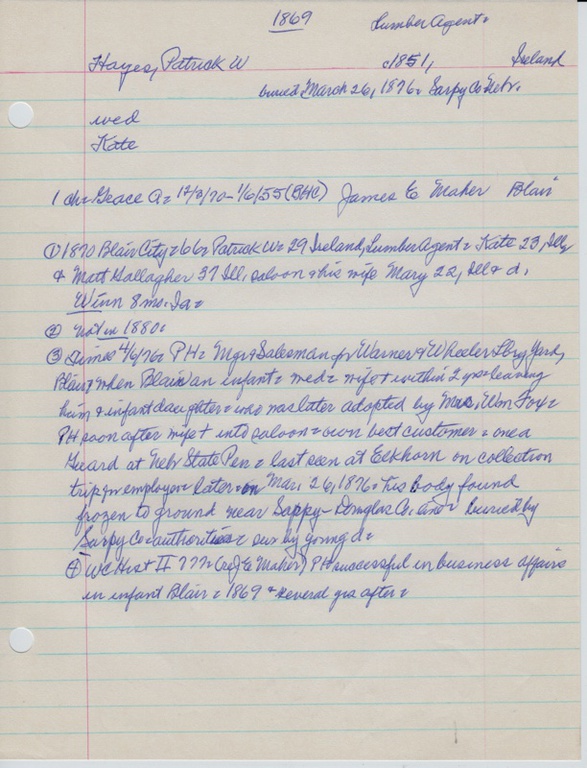 1869 Lumber Agent=
Hayes, Patrick W c1851, Ireland
buried March 26, 1876= Sarpy Co Nebr.
wed
Kate
1 ch= Grace A= 12/3/70-1/6/55 (BHC) James E Maher Blair
① 1870 Blair City= 66= Patrick W= 29 Ireland, Lumber Agent= Kate 23, Ill,
& Matt Gallagher 37 Ill, saloon & his wife Mary 22, Ill & d.
Winn 8 mo. Ia=
② Not in 1880=
③ Times 4/6/76= PH= Mgr & Salesman for Warner & Wheeler Lbry Yard,
Blair when Blair an infant= wed= wife † within 2 yrs leaving
him & infant daughter= who was later adopted by Mrs. Wm Fox=
PH soon after wife † into saloon= own best customer= once a
Guard at Nebr State Pen= last seen at Elkhorn on collection
trip for employer= later on Mar. 26, 1876= his body found
frozen to ground near Sappy- Douglas Co. and= buried by
Sarpy Co authorities= sur by young d=
④ WC Hist II 777= (re J E Maher) PH successful in business affairs
in infant Blair= 1869 & several yrs after=